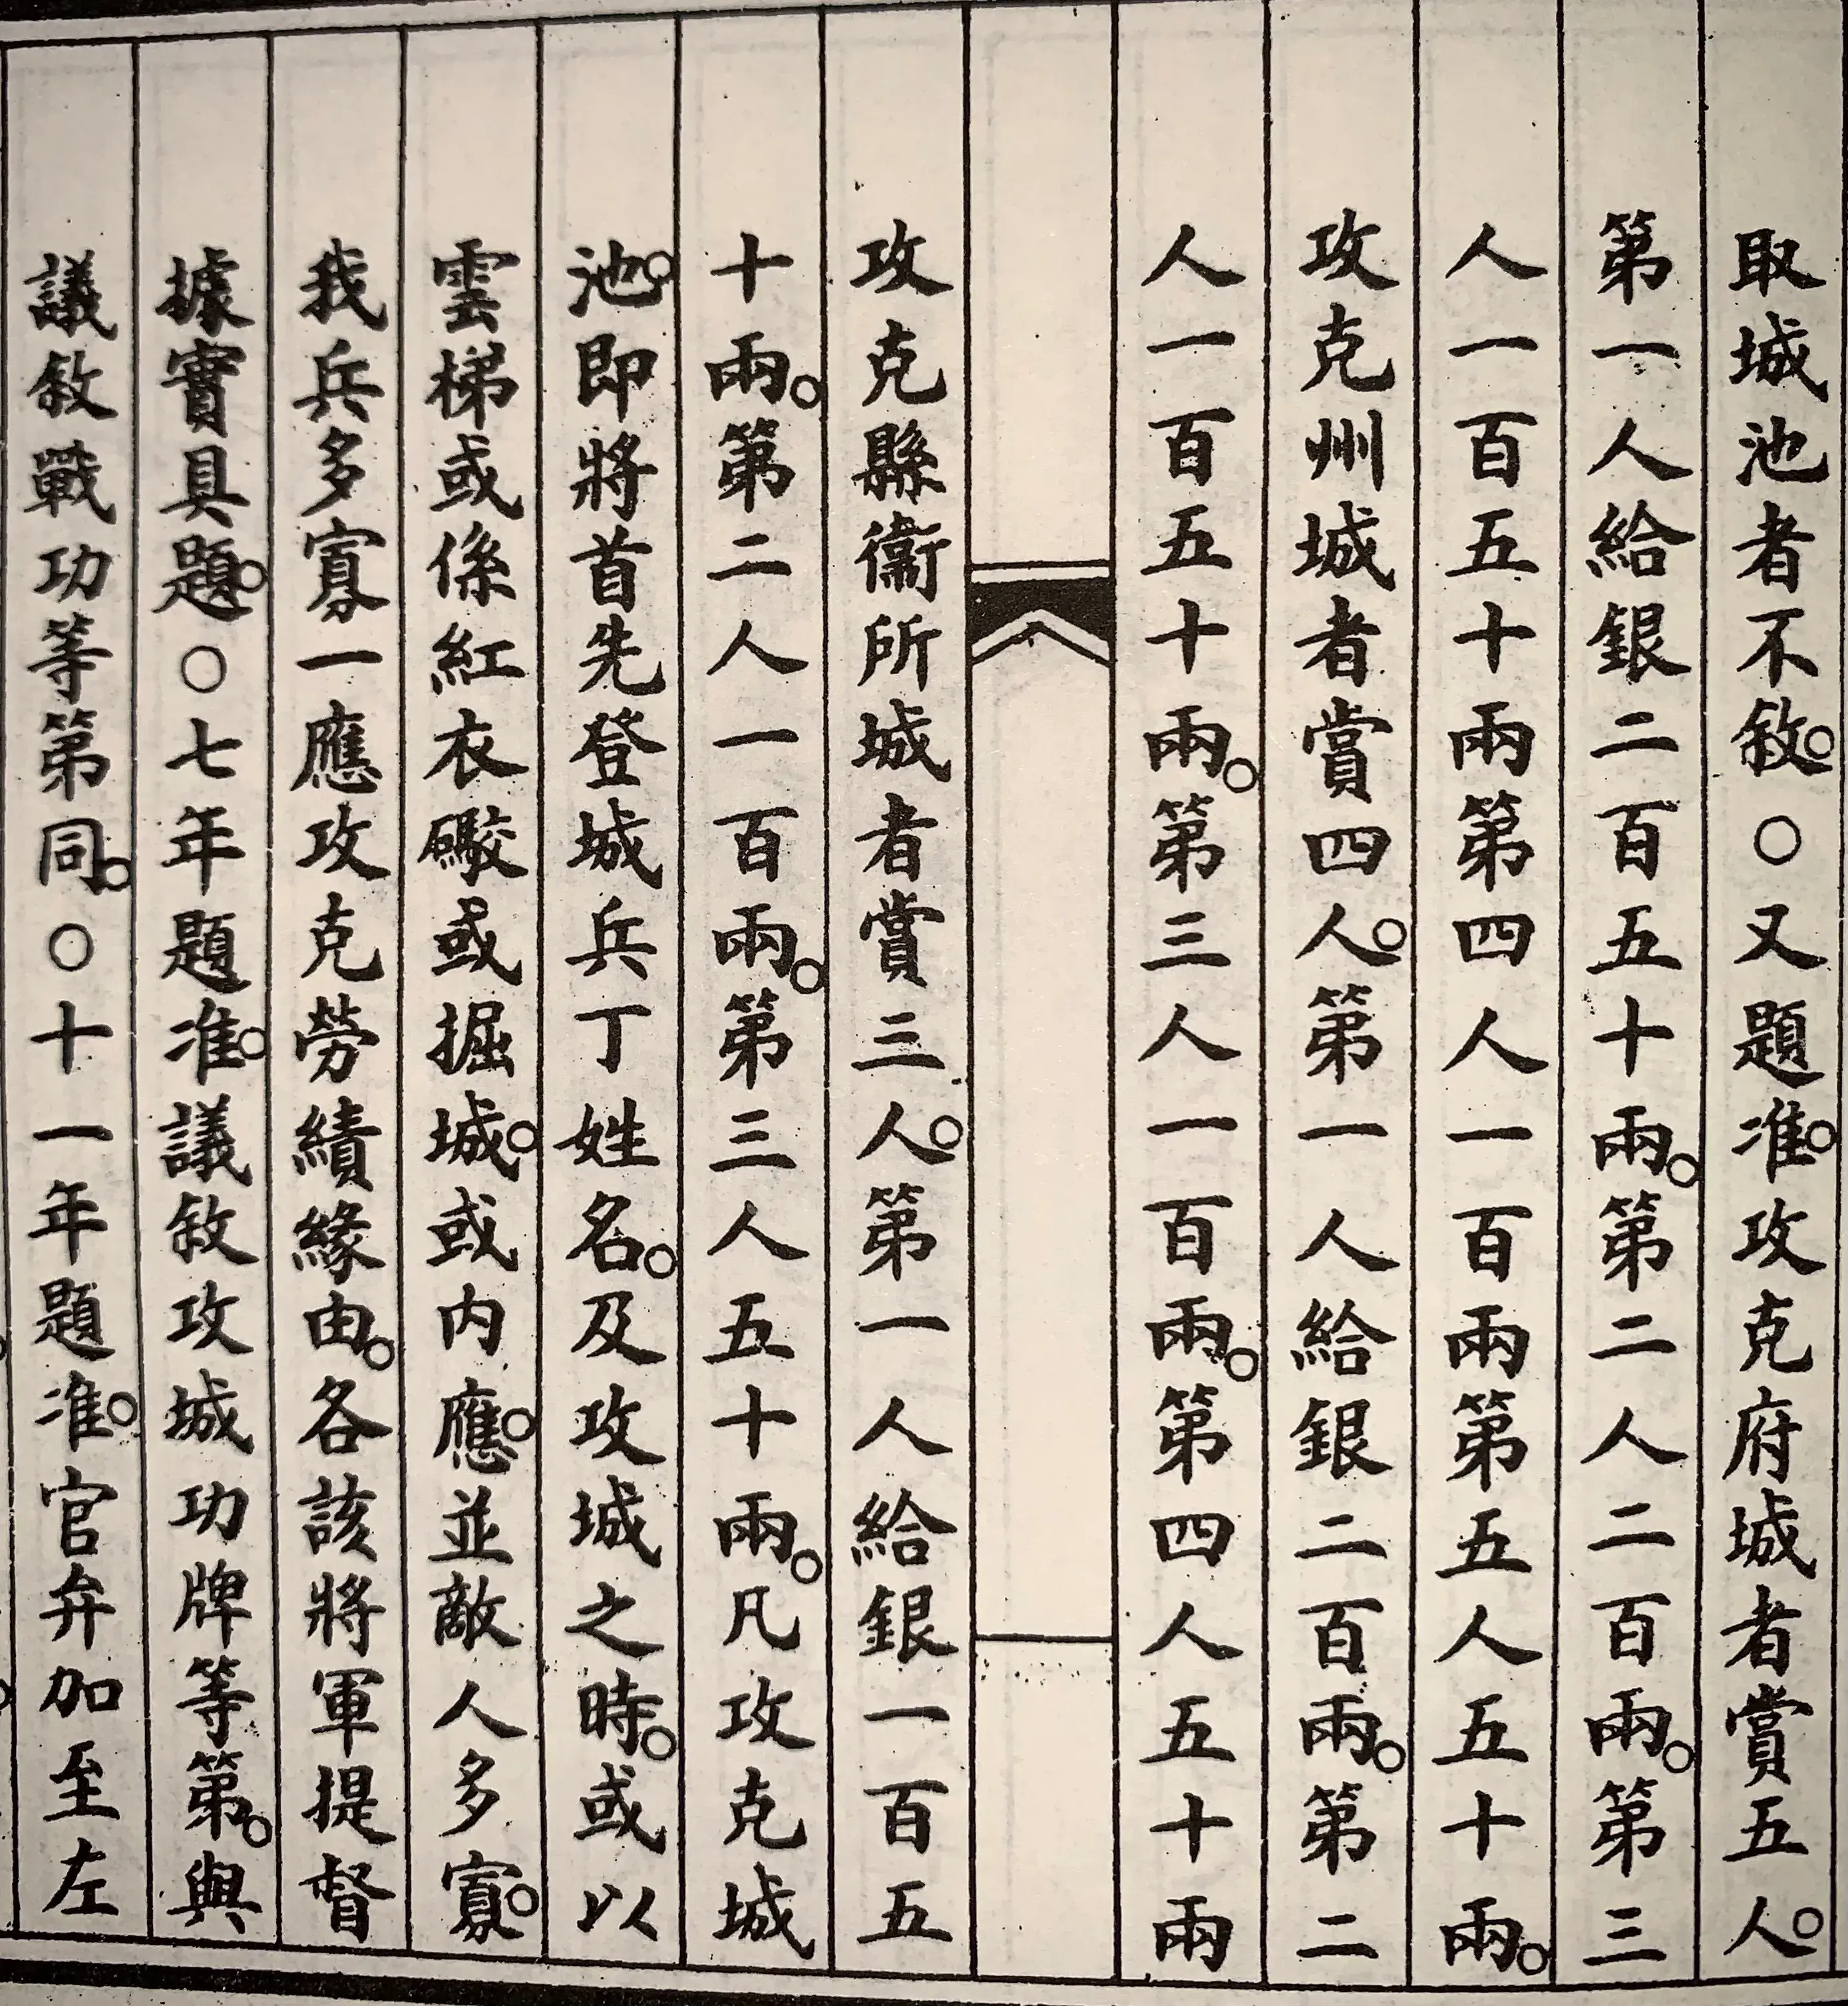 取城池者不敘。○又題准。攻克府城者賞五人。
第一人給銀二百五十兩。第二人二百兩。第三
人一百五十兩第四人一百兩第五人五十兩。
攻克州城者賞四人。第一人給銀二百兩。第二
人一百五十兩。第三人一百兩。第四人五十兩
攻克縣衞所城者賞三人。第一人給銀一百五
十兩。第二人一百兩。第三人五十兩。凡攻克城
池。即將首先登城兵丁姓名。及攻城之時。或以
雲梯或係紅衣礮或掘城。或內應。並敵人多寡。
我兵多寡一應攻克勞績緣由。各該將軍提督
據實具題。○七年題准。議敘攻城功牌等第。與
議敘戰功等第同。○十一年題准。官弁加至左